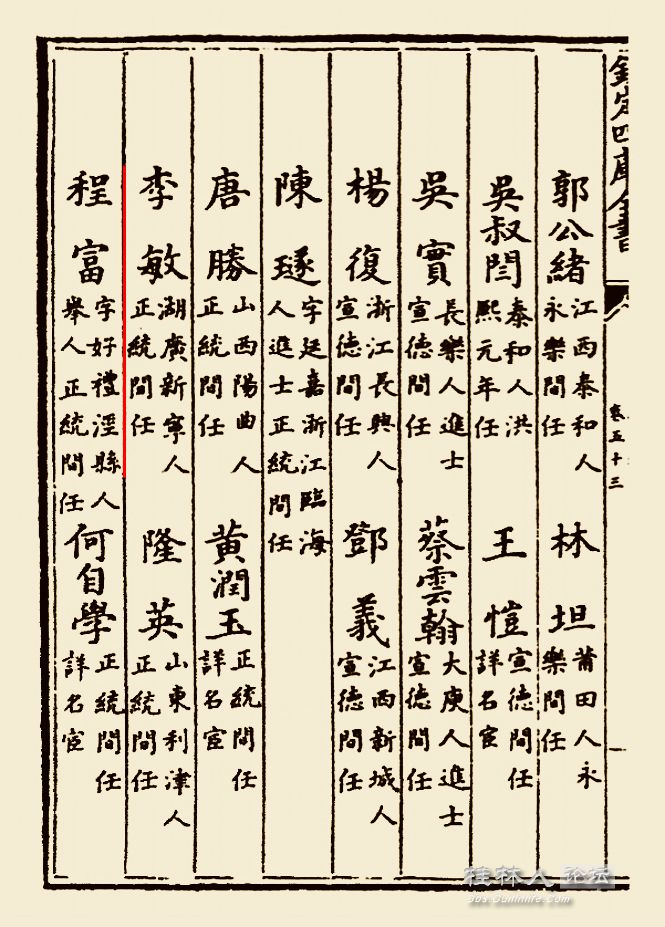 欽定四庫全書
卷五十三
郭公緒 江西泰和人永樂間任 林坦 莆田人永樂間任
吳叔誾 泰和人洪熙元年任 王愷 宣德間任詳名宦
吳實 長樂人進士宣德間任 蔡雲翰 大庾人進士宣德間任
楊復 浙江長興人宣德間任 鄧義 江西新城人宣德間任
陳璲 字廷嘉浙江臨海人進士正統間任
唐勝 山西陽曲人正統間任 黄潤玉 正統間任詳名宦
李敏 湖廣新寧人正統間任 隆英 山東利津人正統間任
程富 字好禮涇縣人舉人正統間任 何自學 正統間任詳名宦
桂林人论坛